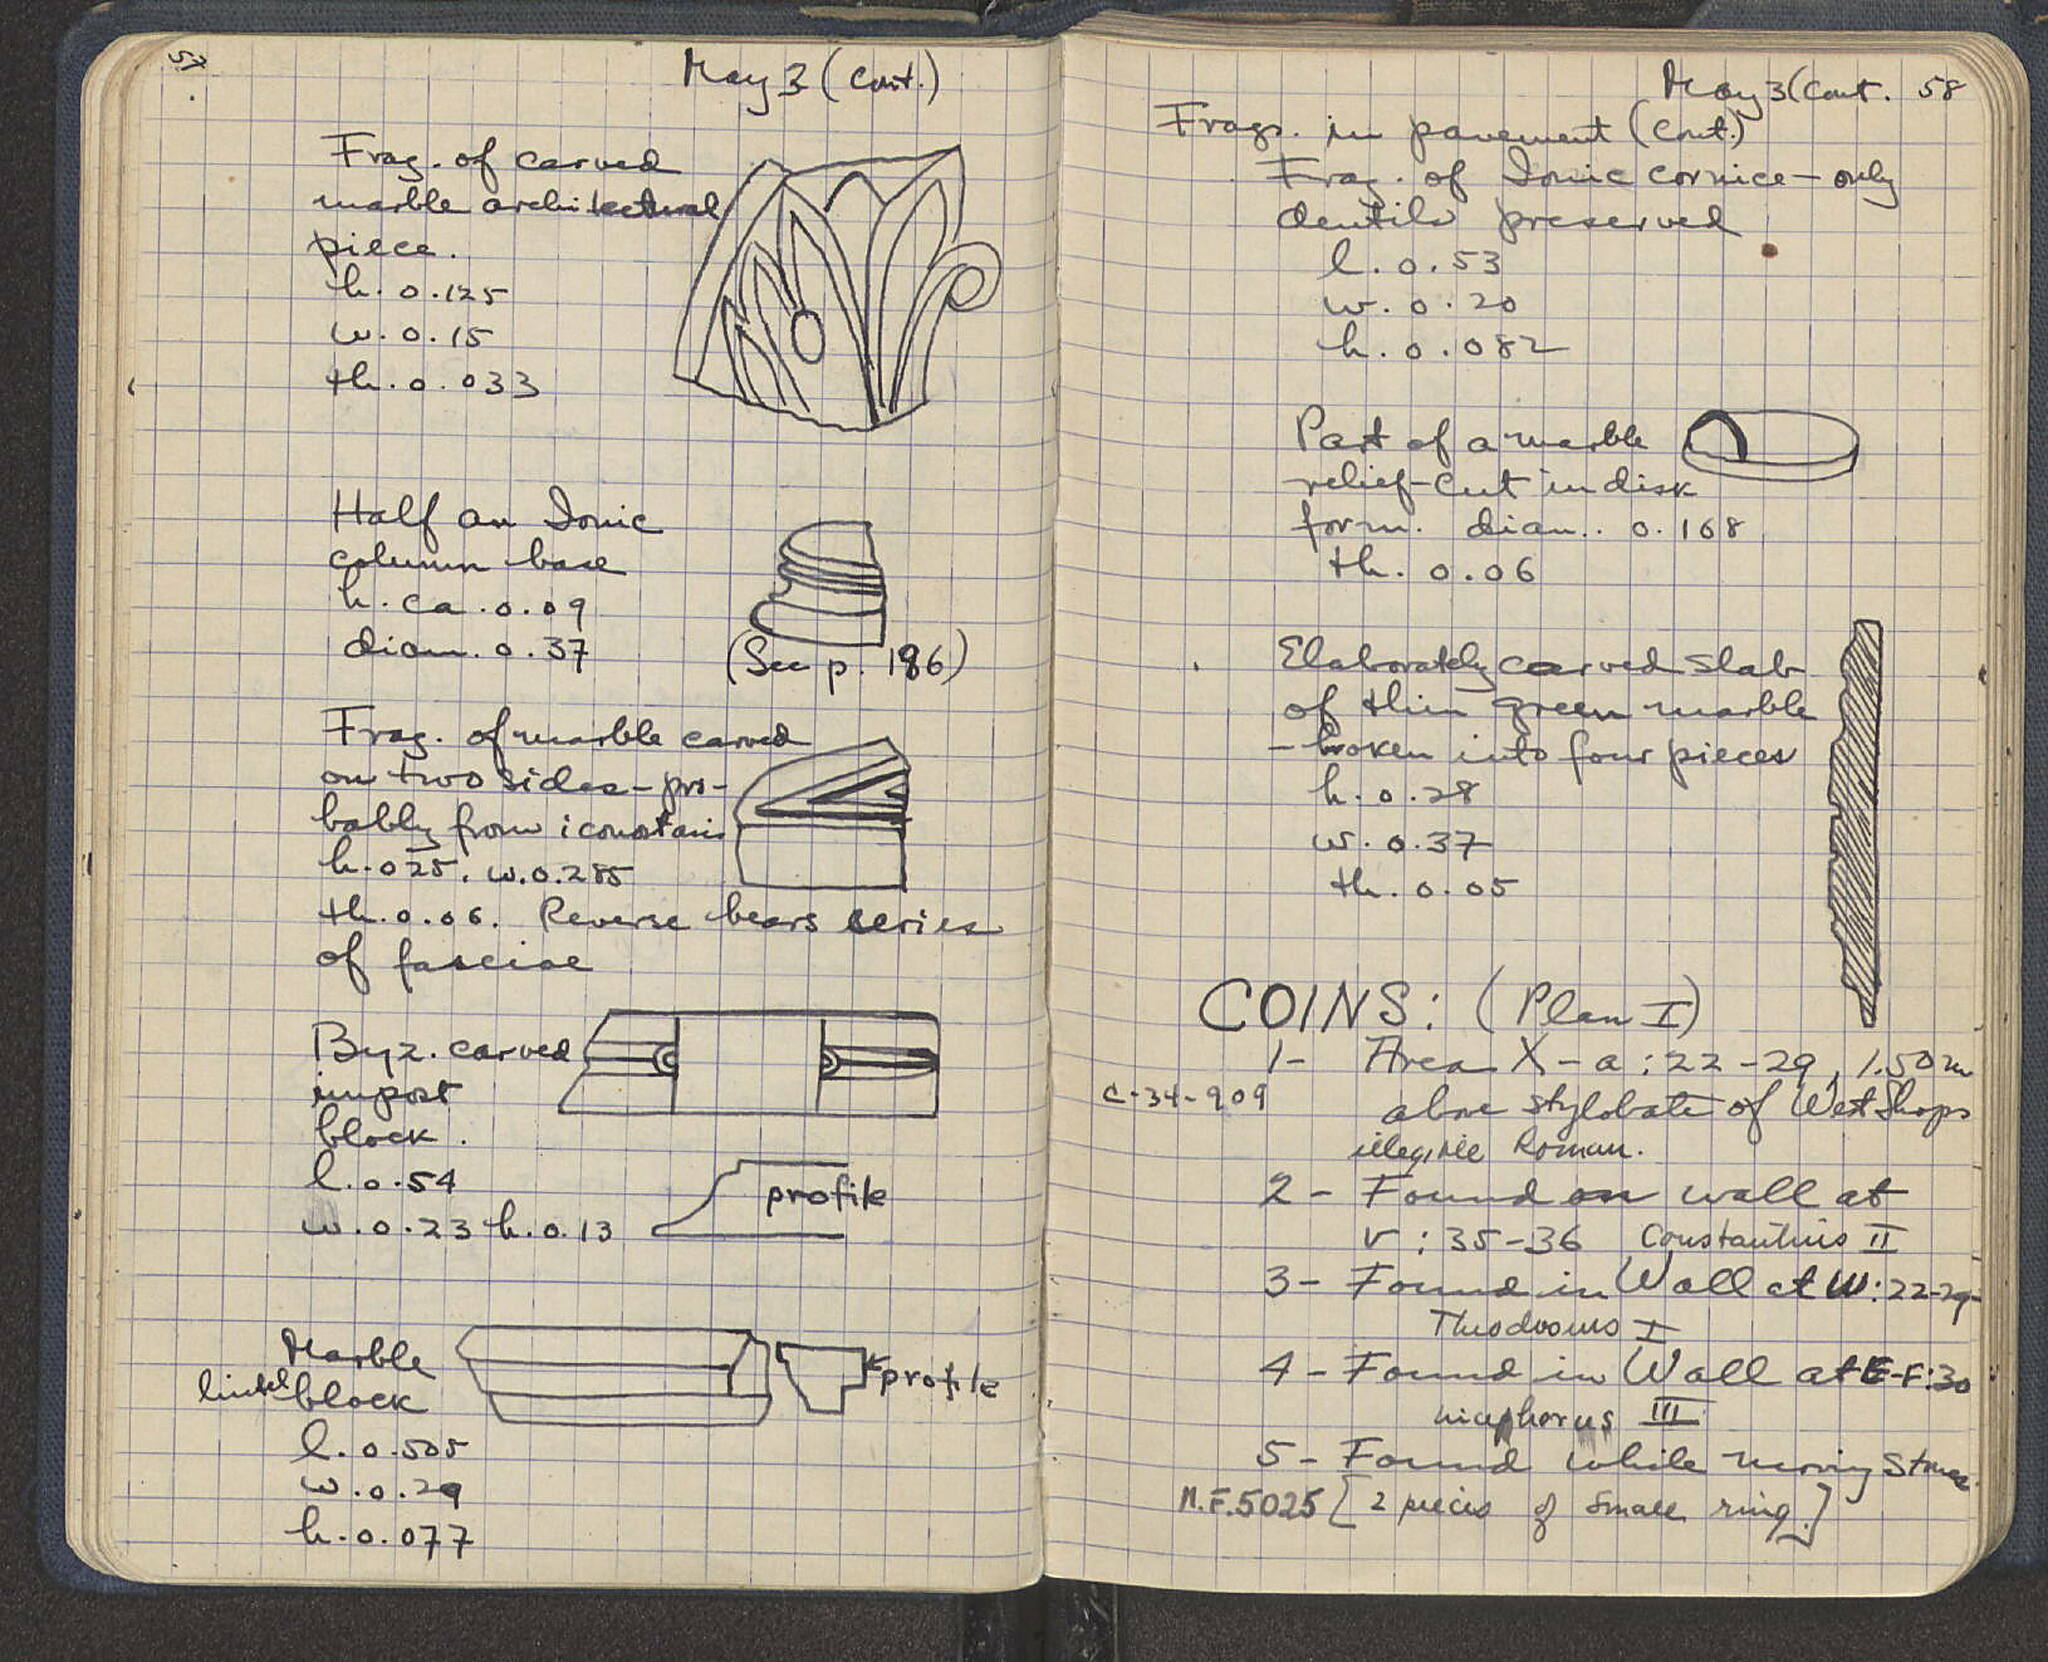 57
May 3 (Cont.)
Frag. of carved
marble architectural
piece.
h. 0.125
w. 0.15
th. 0.033
Half an Ionic
column base
h. ca. 0.09
diam. 0.37
(See p. 186)
Frag. of marble carved
on two sides - pro-
bably from iconostasis
h. 025. w. 0.285
th. 0.06. Reverse bears series
of fasciae
Byz. carved
impost
block.
l. 0.54
w. 0.23 h. 0.13
profile
Marble
lintel block
profile
l. 0.505
w. 0.29
h. 0.077
May 3 (Cont. 58
Frags. in pavement (Cont.)
Frag. of Ionic cornice - only
dentils preserved
l. 0.53
w. 0.20
h. 0.082
Part of a marble
relief - cut in disk
form. diam.. 0.168
th. 0.06
Elaborately carved slab
of thin green marble
- broken into four pieces
h. 0.28
w. 0.37
th. 0.05
COINS: (Plan I)
1- Area X-a: 22-29, 1.50 m
C-34-909 above stylobate of West Shops
illegible Roman.
2- Found on wall at
V: 35-36 Constantius II
3- Found in Wall at W: 22-29-
Theodosius I
4- Found in Wall at E-F:30
nicephorus III
5- Found while moving stones.
M.F. 5025 [2 pieces of small ring.]